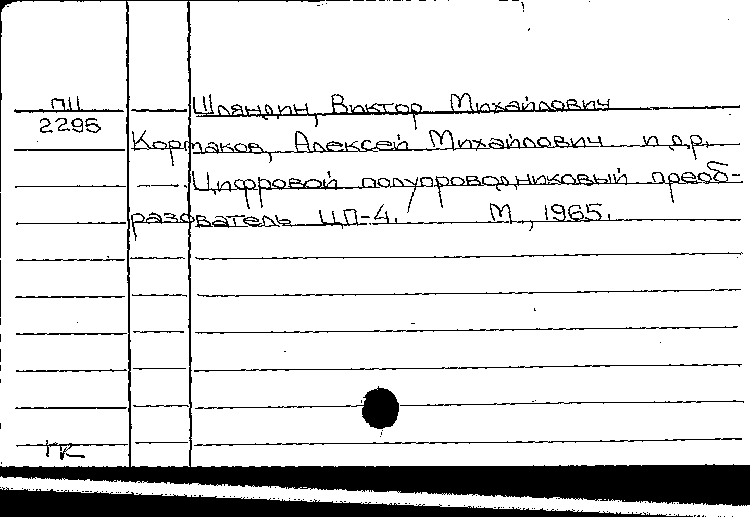 ПП Шляндин, Виктор Михайлович
2296 Кортаков, Алексей Михайлович и др.
Цифровой полупроводниковый преоб-
разователь ЦП-4. / М., 1965.